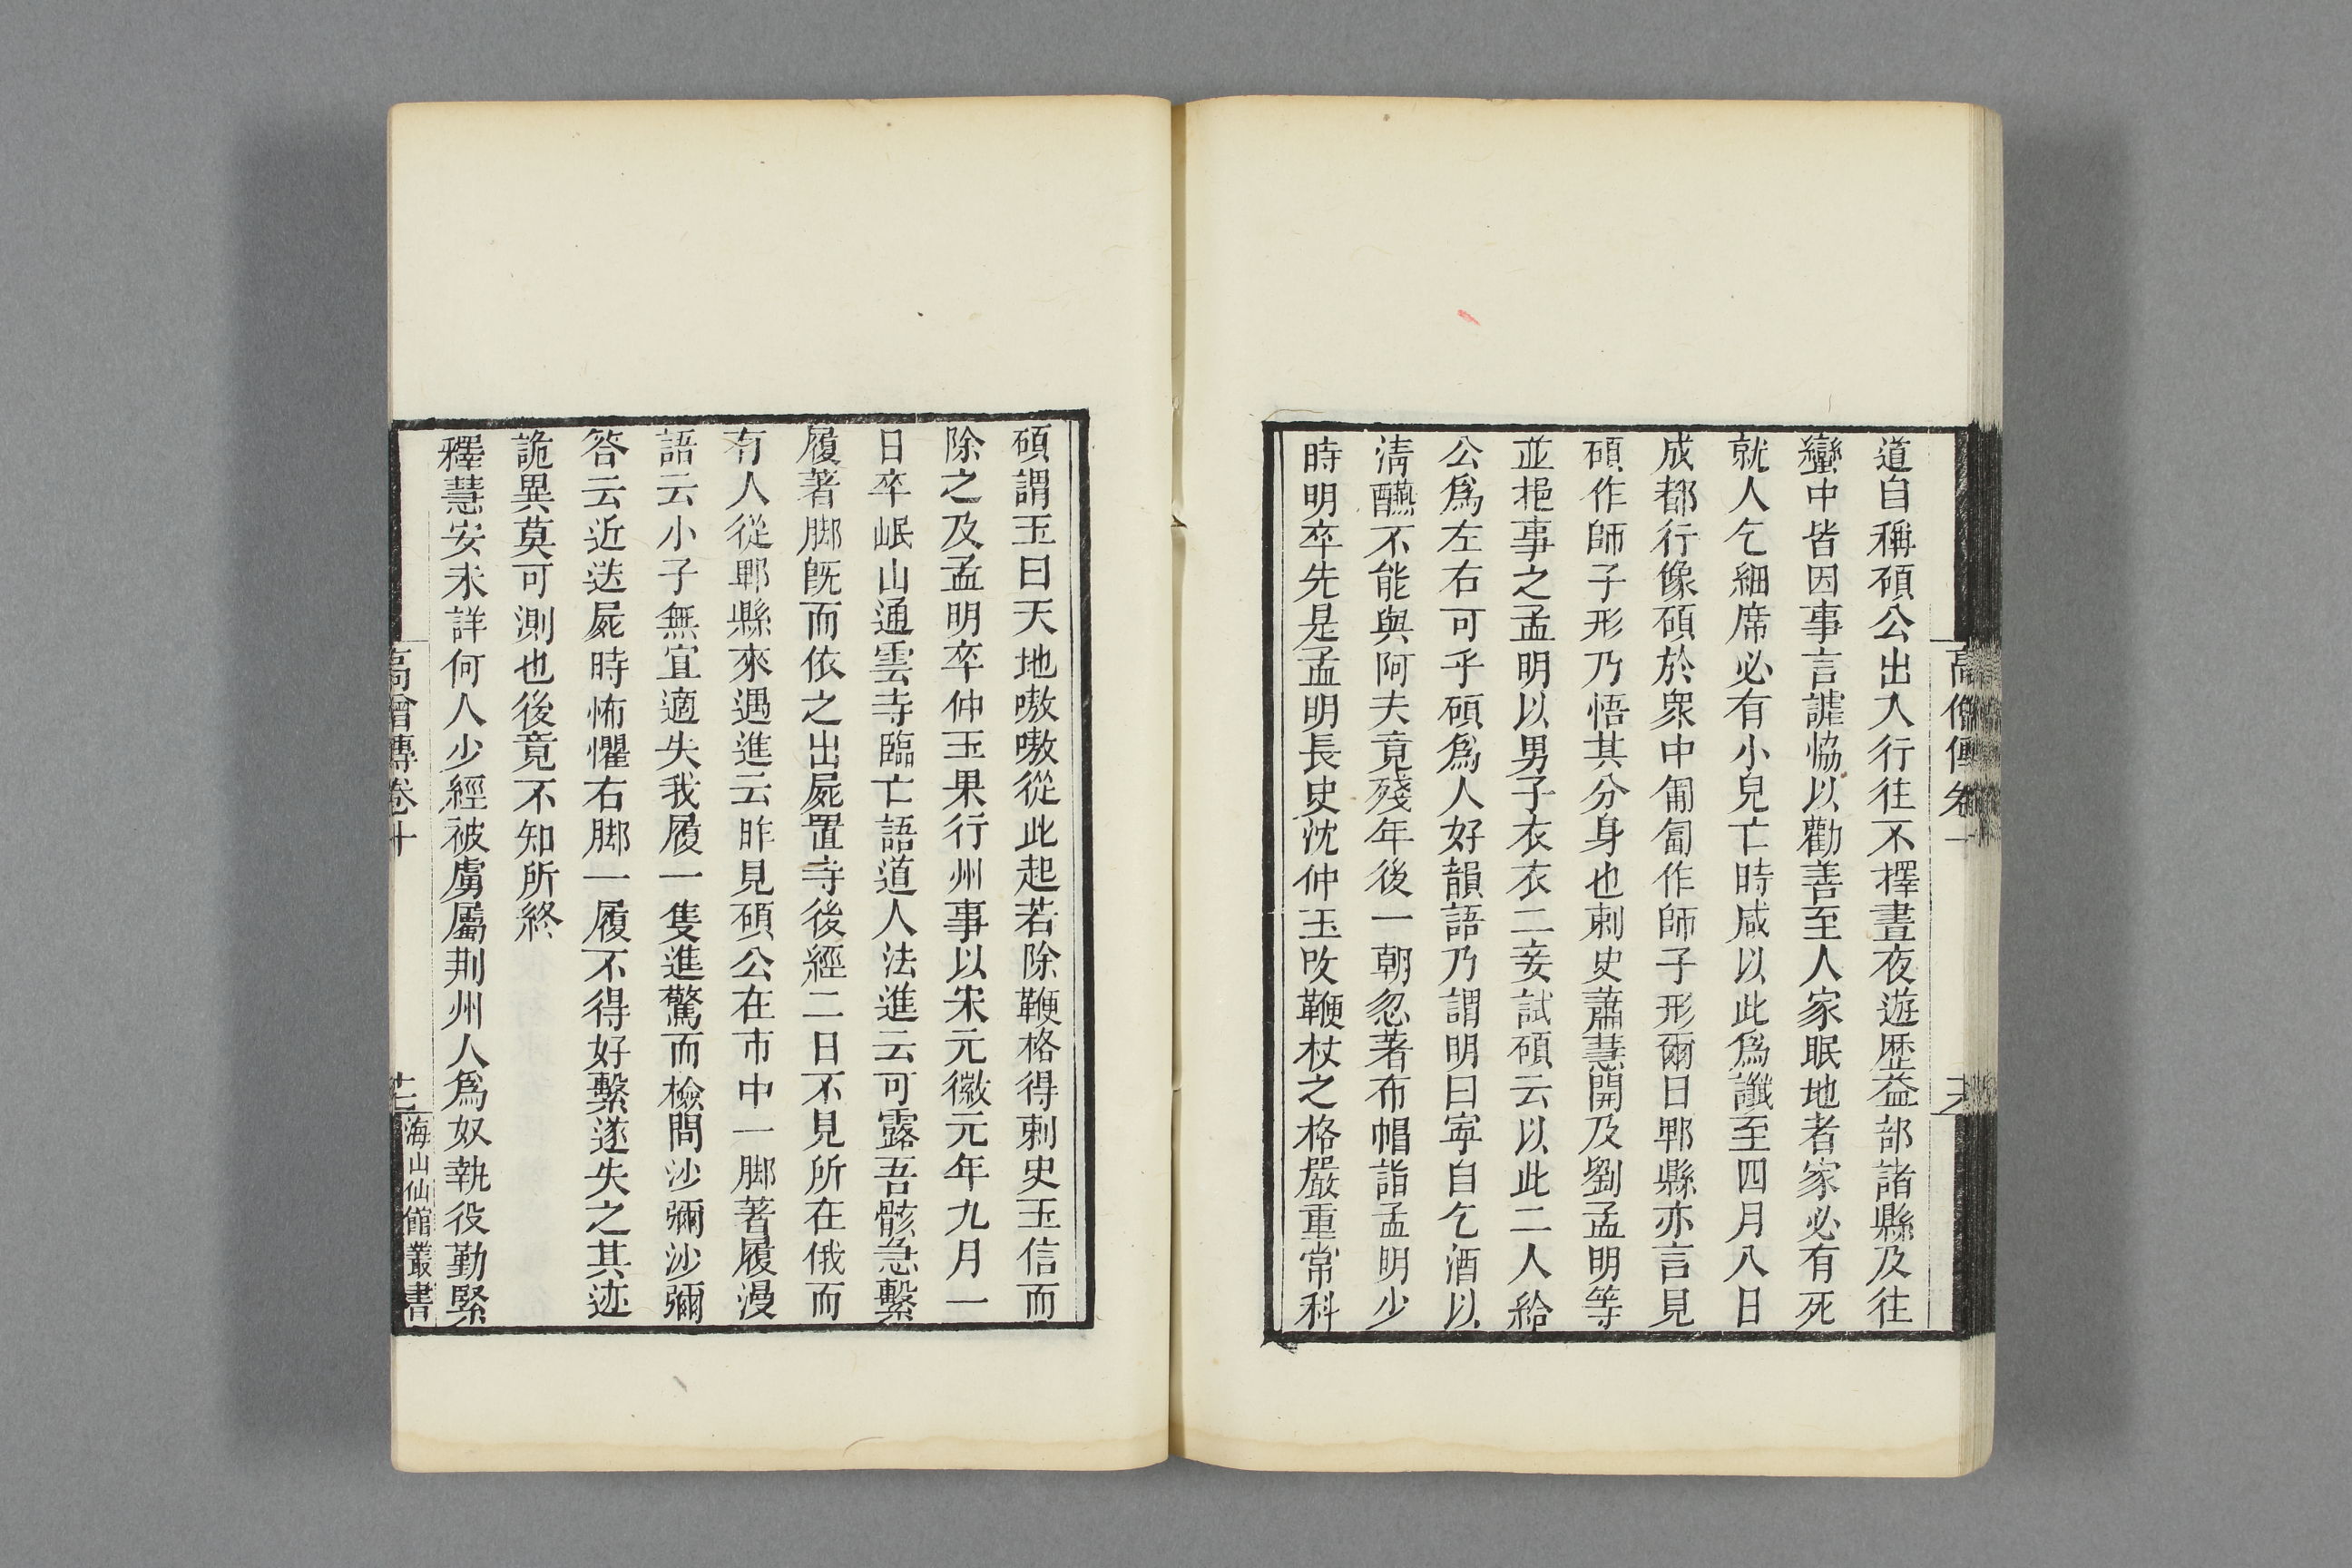 道自稱碩公出入行往不擇晝夜遊歷益部諸縣及往
蠻中皆因事言謔恊以勸善至人家眠地者家必有死
就人乞細席必有小兒亡時咸以此爲讖至四月八日
成都行像碩於衆中匍匐作師子形爾日郫縣亦言見
碩作師子形乃悟其分身也刺史蕭慧開及劉孟明等
並挹事之孟明以男子衣衣二妾試碩云以此二人給
公爲左右可乎碩爲人好韻語乃謂明曰寧自乞酒以
淸醼不能與阿夫竟殘年後一朝忽著布帽詣孟明少
時明卒先是孟明長史沈仲玉改鞭杖之格嚴重常科
碩謂玉曰天地嗷嗷從此起若除鞭格得刺史玉信而
除之及孟明卒仲玉果行州事以宋元徽元年九月一
日卒岷山通雲寺臨亡語道人法進云可露吾骸急繫
履著脚旣而依之出屍置寺後經二日不見所在俄而
有人從郫縣來遇進云昨見碩公在市中一脚著履漫
語云小子無宜適失我履一隻進驚而檢問沙彌沙彌
答云近送屍時怖懼右脚一履不得好繫遂失之其迹
詭異莫可測也後竟不知所終
釋慧安未詳何人少經被虜屬荆州人爲奴執役勤緊
高僧傳卷十
海山仙館叢書